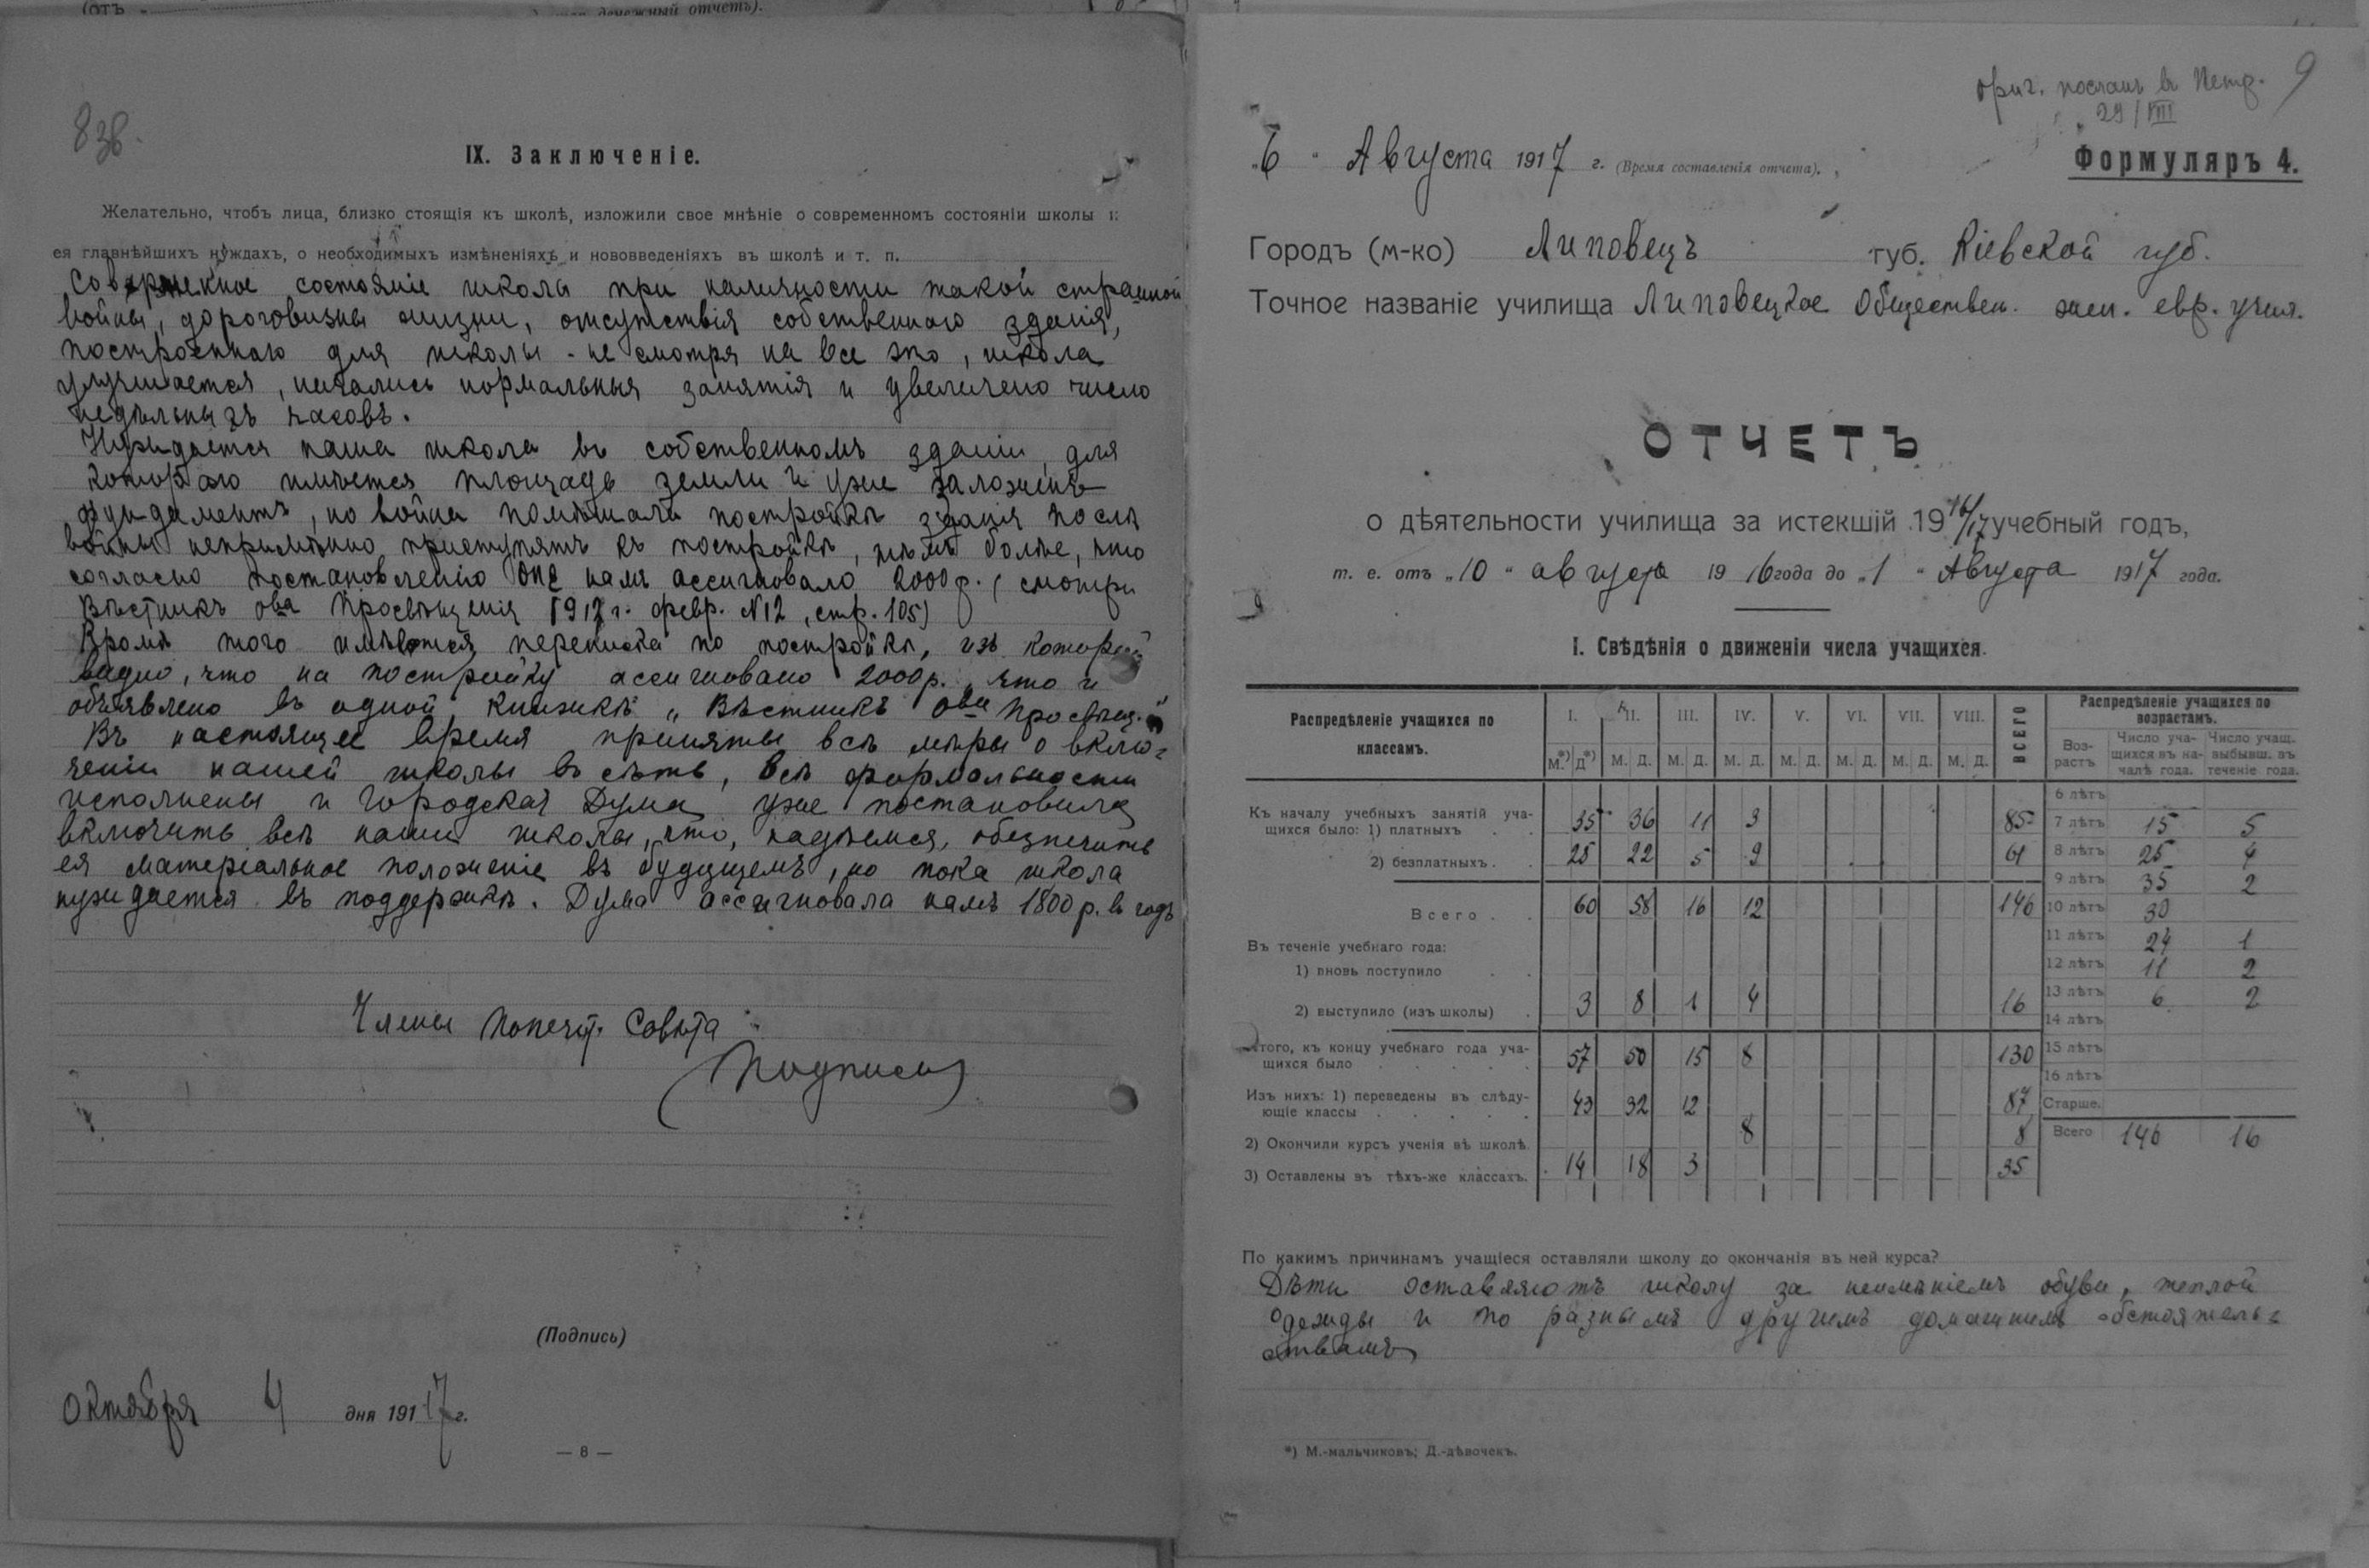 8 зв.
IX. Заключеніе.
Желательно, чтобъ лица, близко стоящія къ школѣ, изложили свое мнѣніе о современномъ состояніи школы и
ея главнѣйшихъ нуждахъ, о необходимыхъ измѣненіяхъ и нововведеніяхъ въ школѣ и т. п.
состояніе школы при наличности такой страшной
войны, дороговизны жизни, отсутствія собственнаго зданія,
построеннаго для школы - не смотря на все это, школа
улучшается, начались нормальныя занятія и увеличено число
недѣльныхъ часовъ.
Нуждается наша школа въ собственномъ зданіи, для
котораго имѣется площадь земли и уже заложенъ
фундаментъ, но война помѣшала постройкѣ зданія послѣ
войны непримѣнно приступятъ къ постройкѣ, тѣмъ болѣе, что
согласно постановленію ОПЕ намъ ассигновало 2000 р. (смотри
Вѣстникъ о-ва Просвѣщенія 1917 г. февр. №12, стр. 105)
Кромѣ того имѣется переписка по постройкѣ, изъ которой
видно, что на постройку ассигновано 2000 р., что и
объявлено въ одной книжкѣ „Вѣстникъ о-ва Просвѣщ."
Въ настоящее время приняты всѣ мѣры о вклю-
ченіи нашей школы въ сѣть, всѣ формальности
исполнены и Городская Дума уже постановила
включить всѣ наши школы, что, надѣемся, обезпечитъ
ея матеріальное положеніе въ будущемъ, но пока школа
нуждается въ поддержкѣ. Дума ассигновала намъ 1800 р. въ годъ
Члены Попечит. Совѣта:
(Подписи)
(Подпись)
Октября 4 дня 1917 г.
— 8 —
ориг. посланъ въ Петр. 9
29/VIII
„6" Августа 1917 г. (Время составленія отчета).
Формуляръ 4.
Городъ (м-ко) Липовецъ губ. Кіевской губ.
Точное названіе училища Липовецкое Обществен. жен. евр. учил.
ОТЧЕТЪ
о дѣятельности училища за истекшій 1916/17 учебный годъ,
т. е. отъ „10" августа 1916 года до „1" Августа 1917 года.
I. Свѣдѣнія о движеніи числа учащихся.
Распредѣленіе учащихся по классамъ. I. II. III. IV. V. VI. VII. VIII. ВСЕГО
М.*) Д.*) М. Д. М. Д. М. Д. М. Д. М. Д. М. Д. М. Д.
Къ началу учебныхъ занятій уча-
щихся было: 1) платныхъ 35 36 11 3 85
2) безплатныхъ 25 22 5 9 61
Всего 60 58 16 12 146
Въ теченіе учебнаго года:
1) вновь поступило
2) выступило (изъ школы) 3 8 1 4 16
Итого, къ концу учебнаго года уча-
щихся было 57 50 15 8 130
Изъ нихъ: 1) переведены въ слѣду-
ющіе классы 43 32 12 87
2) Окончили курсъ ученія въ школѣ. 8 8
3) Оставлены въ тѣхъ-же классахъ. 14 18 3 35
Распредѣленіе учащихся по
возрастамъ.
Воз-
растъ
Число уча-
щихся въ на-
чалѣ года.
Число учащ.
выбывш. въ
теченіе года.
6 лѣтъ
7 лѣтъ 15 5
8 лѣтъ 25 4
9 лѣтъ 35 2
10 лѣтъ 30
11 лѣтъ 24 1
12 лѣтъ 11 2
13 лѣтъ 6 2
14 лѣтъ
15 лѣтъ
16 лѣтъ
Старше.
Всего 146 16
По какимъ причинамъ учащіеся оставляли школу до окончанія въ ней курса?
Дѣти оставляютъ школу за неимѣніемъ обуви, теплой
одежды и по разнымъ другимъ домашнимъ обстоятель-
ствамъ
*) М.-мальчиковъ; Д.-дѣвочекъ.